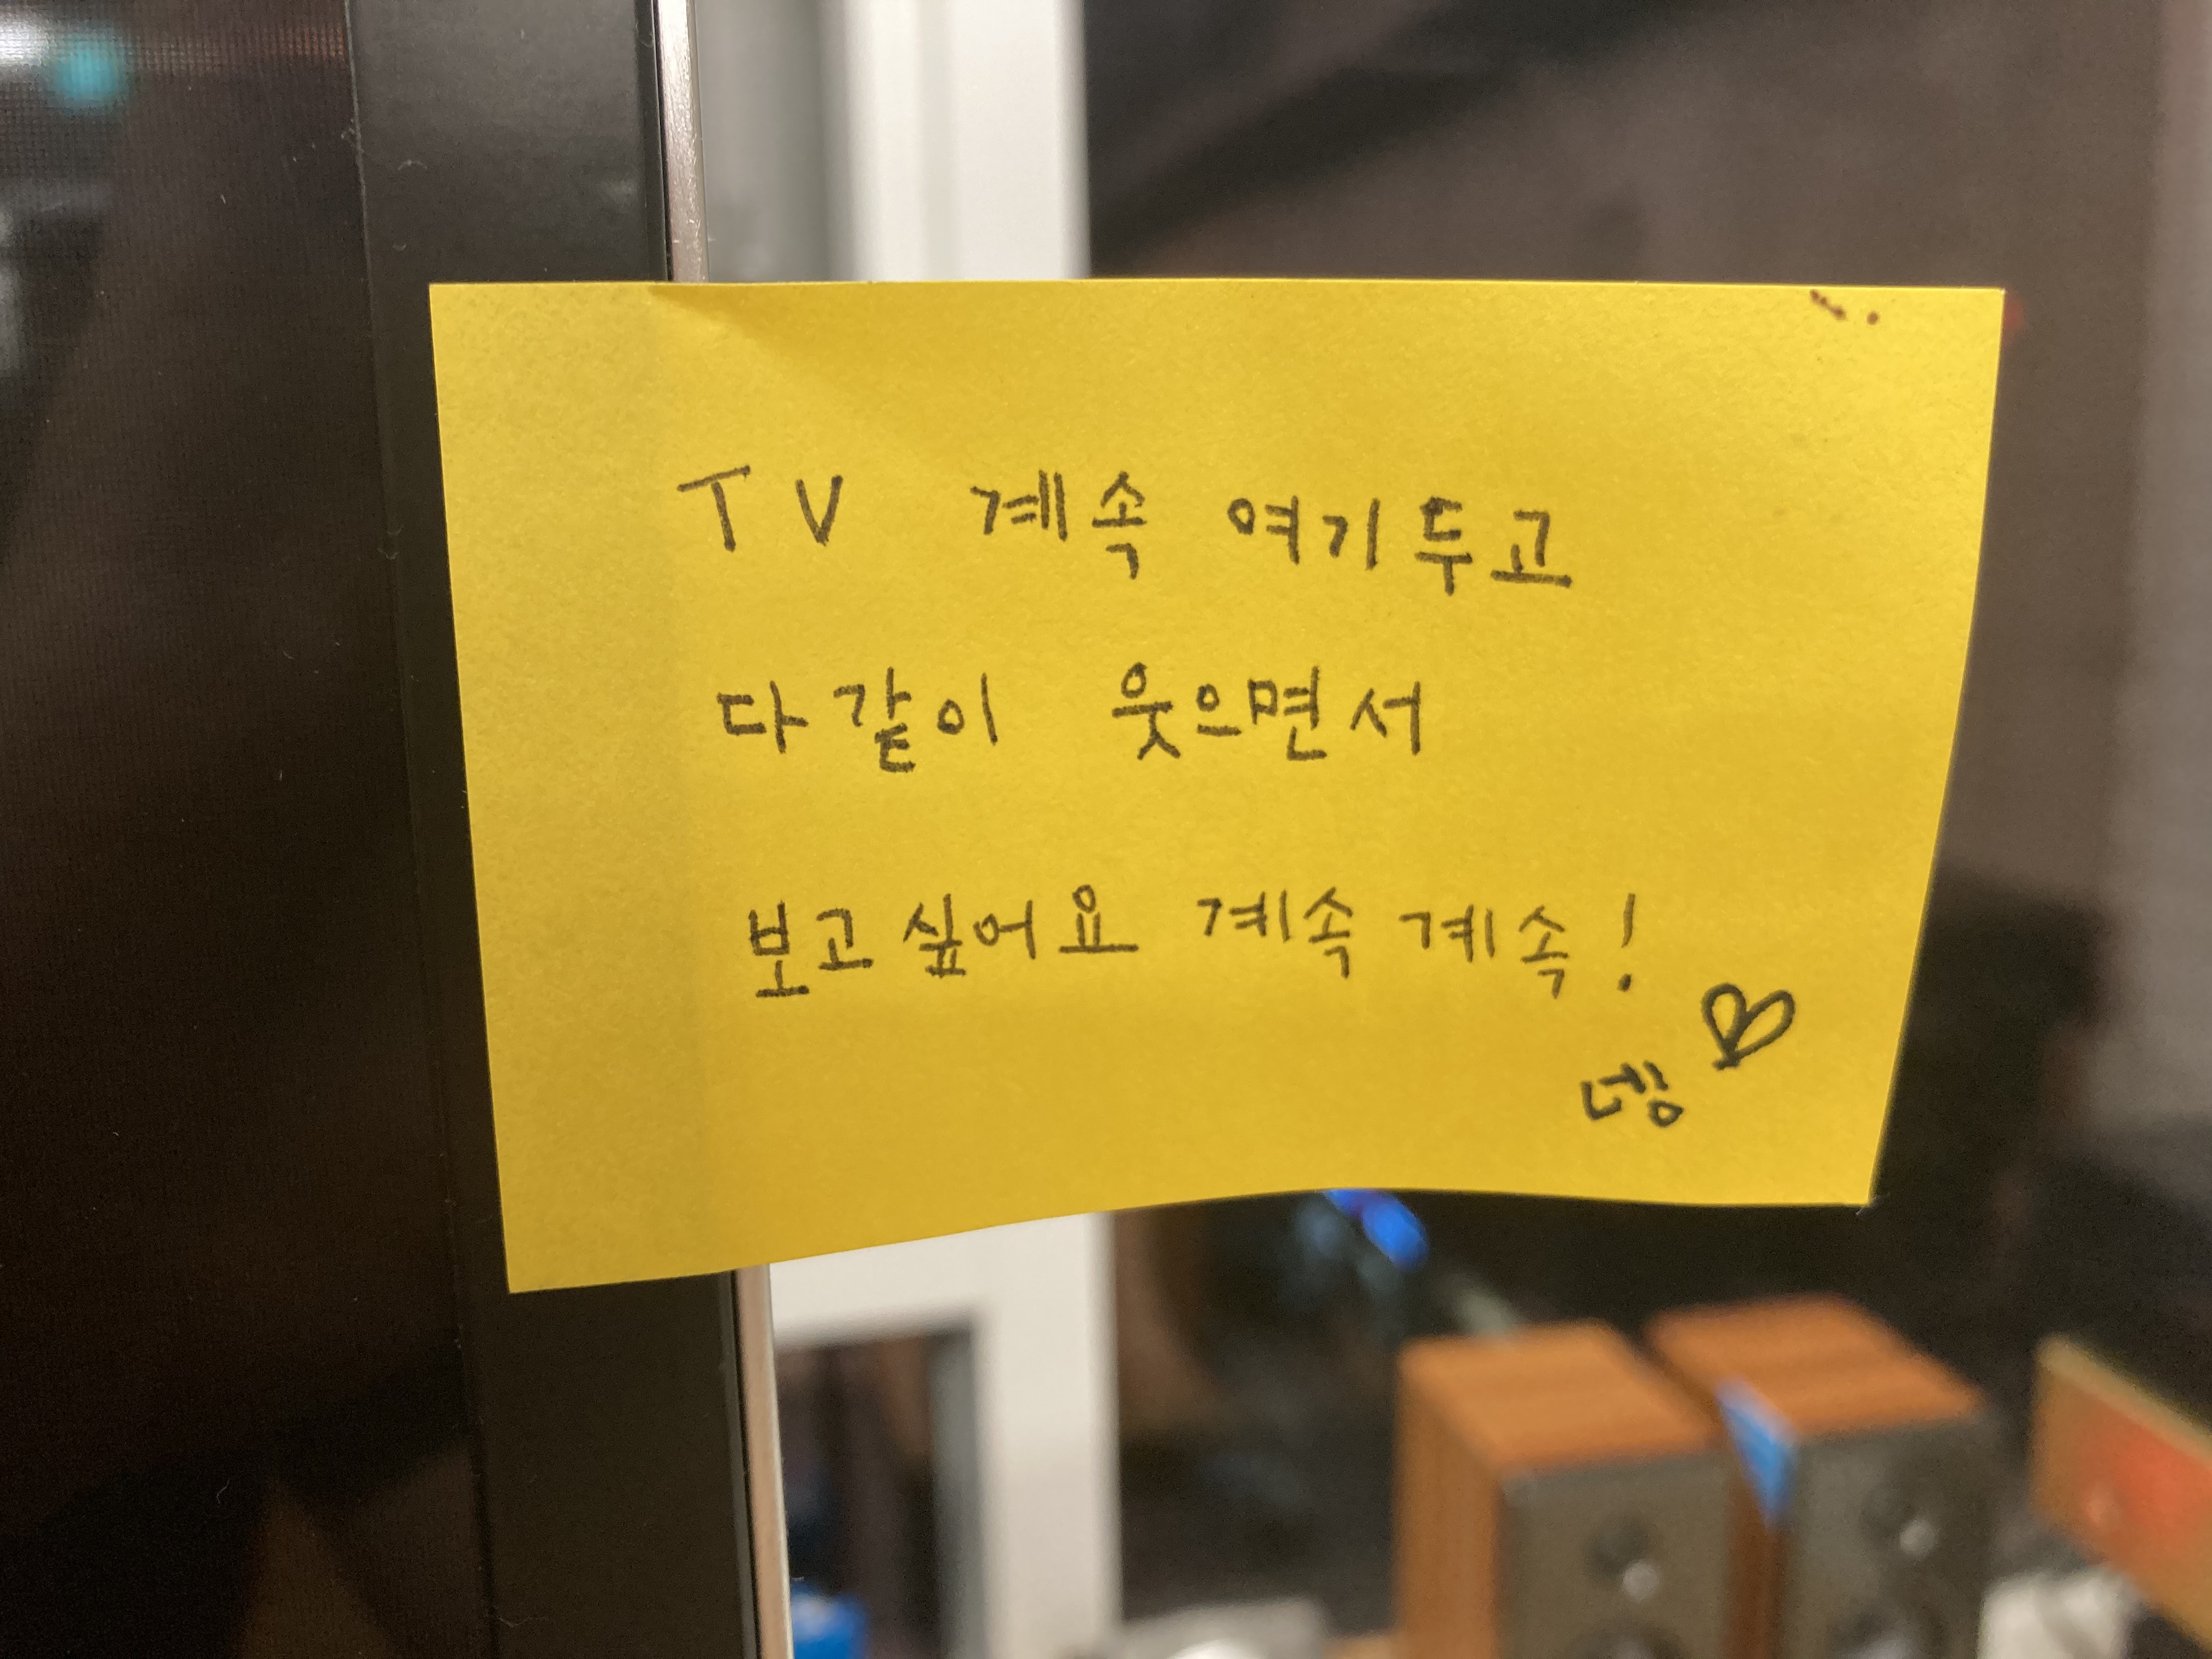 TV 계속 여기두고
다같이 웃으면서
보고싶어요 계속 계속!
넹